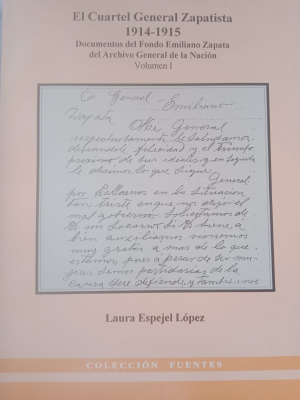 El Cuartel General Zapatista
1914-1915
Documentos del Fondo Emiliano Zapata
del Archivo General de la Nación
Volumen I
General Emiliano
Zapata
General
respectuosamente le saludamos
deseandole felicidad y el triunfo
proximo de sus ideales y en seguida
le decimos lo que sigue
General
por hallarnos en la situacion
tan triste en que nos dejo el
mal gobierno Solicitamos de
un Socorro si tiene a
bien auxiliarnos
muy gratas a mas de lo que
estamos, pues a pesar de ser mu-
jeres semos partidarias de la
causa que defiende, y tambien
Laura Espejel López
COLECCIÓN FUENTES